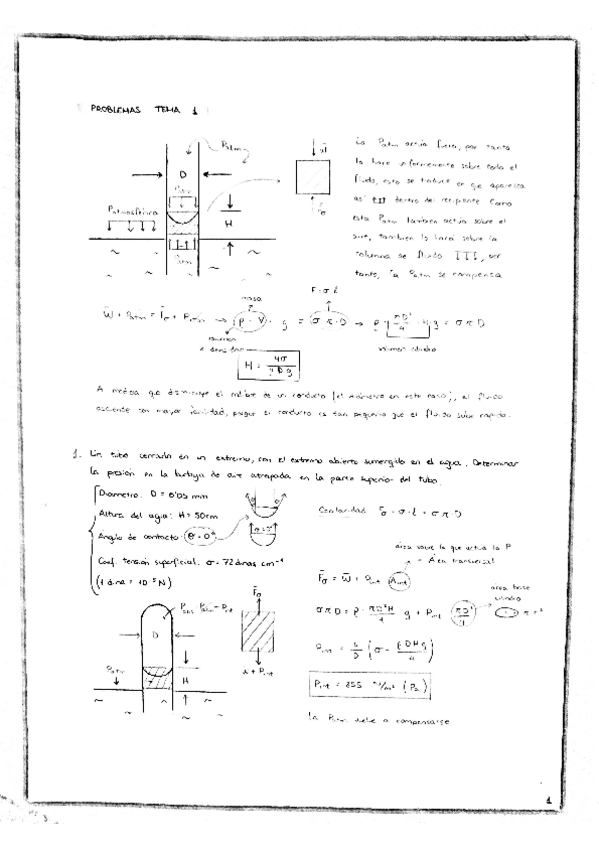 PROBLEMAS TEMA 1
Patm
D
Patm
Patmosférica
H
Patm
W
Fσ
La Patm actúa fuera, por tanto
la hace uniformemente sobre todo el
fluido, esto se traduce en que aparezca
así dentro del recipiente. Como
esta Patm también actúa sobre el
aire, también lo hará sobre la
columna de fluido, por
tanto, la Patm se compensa
F = σ·l
masa
W + Patm = Fσ + Patm → ρ·V·g = σ·π·D → ρ·πD²/4·H·g = σπD
volumen cilindro
H = 4σ/ρDg
A medida que disminuye el radio de un conducto (el diámetro en este caso), el fluido
asciende con mayor facilidad, porque el conducto es tan pequeño que el fluido sube rápido.
1. Un tubo cerrado en un extremo, con el extremo abierto sumergido en el agua. Determinar
la presión en la burbuja de aire atrapada en la parte superior del tubo.
Diámetro: D = 0'05 mm
Altura del agua: H = 50cm
Ángulo de contacto: θ = 0°
θ=0°
Coef. tensión superficial: σ = 72 dinas cm⁻¹
(1 dina = 10⁻⁵N)
Fσ = σ·l = σ·π·D
área sobre la que actúa la P
= Área transversal
Fσ = W + Pint · Aint
área base
cilindro
σπD = ρ·πD²H/4 g + Pint πD²/4
π·r²
Pint = 4/D (σ - ρDHg/4)
Pint = 855 N/m² (Pa)
La Patm vuelve a compensarse
D
Patm
H
Fσ
W + Pint
1